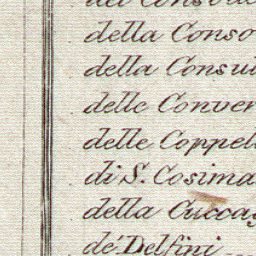 della Conso
della Consu
delle Conver
delle Coppel
di S. Cosima
della Cuccag
de' Delfini